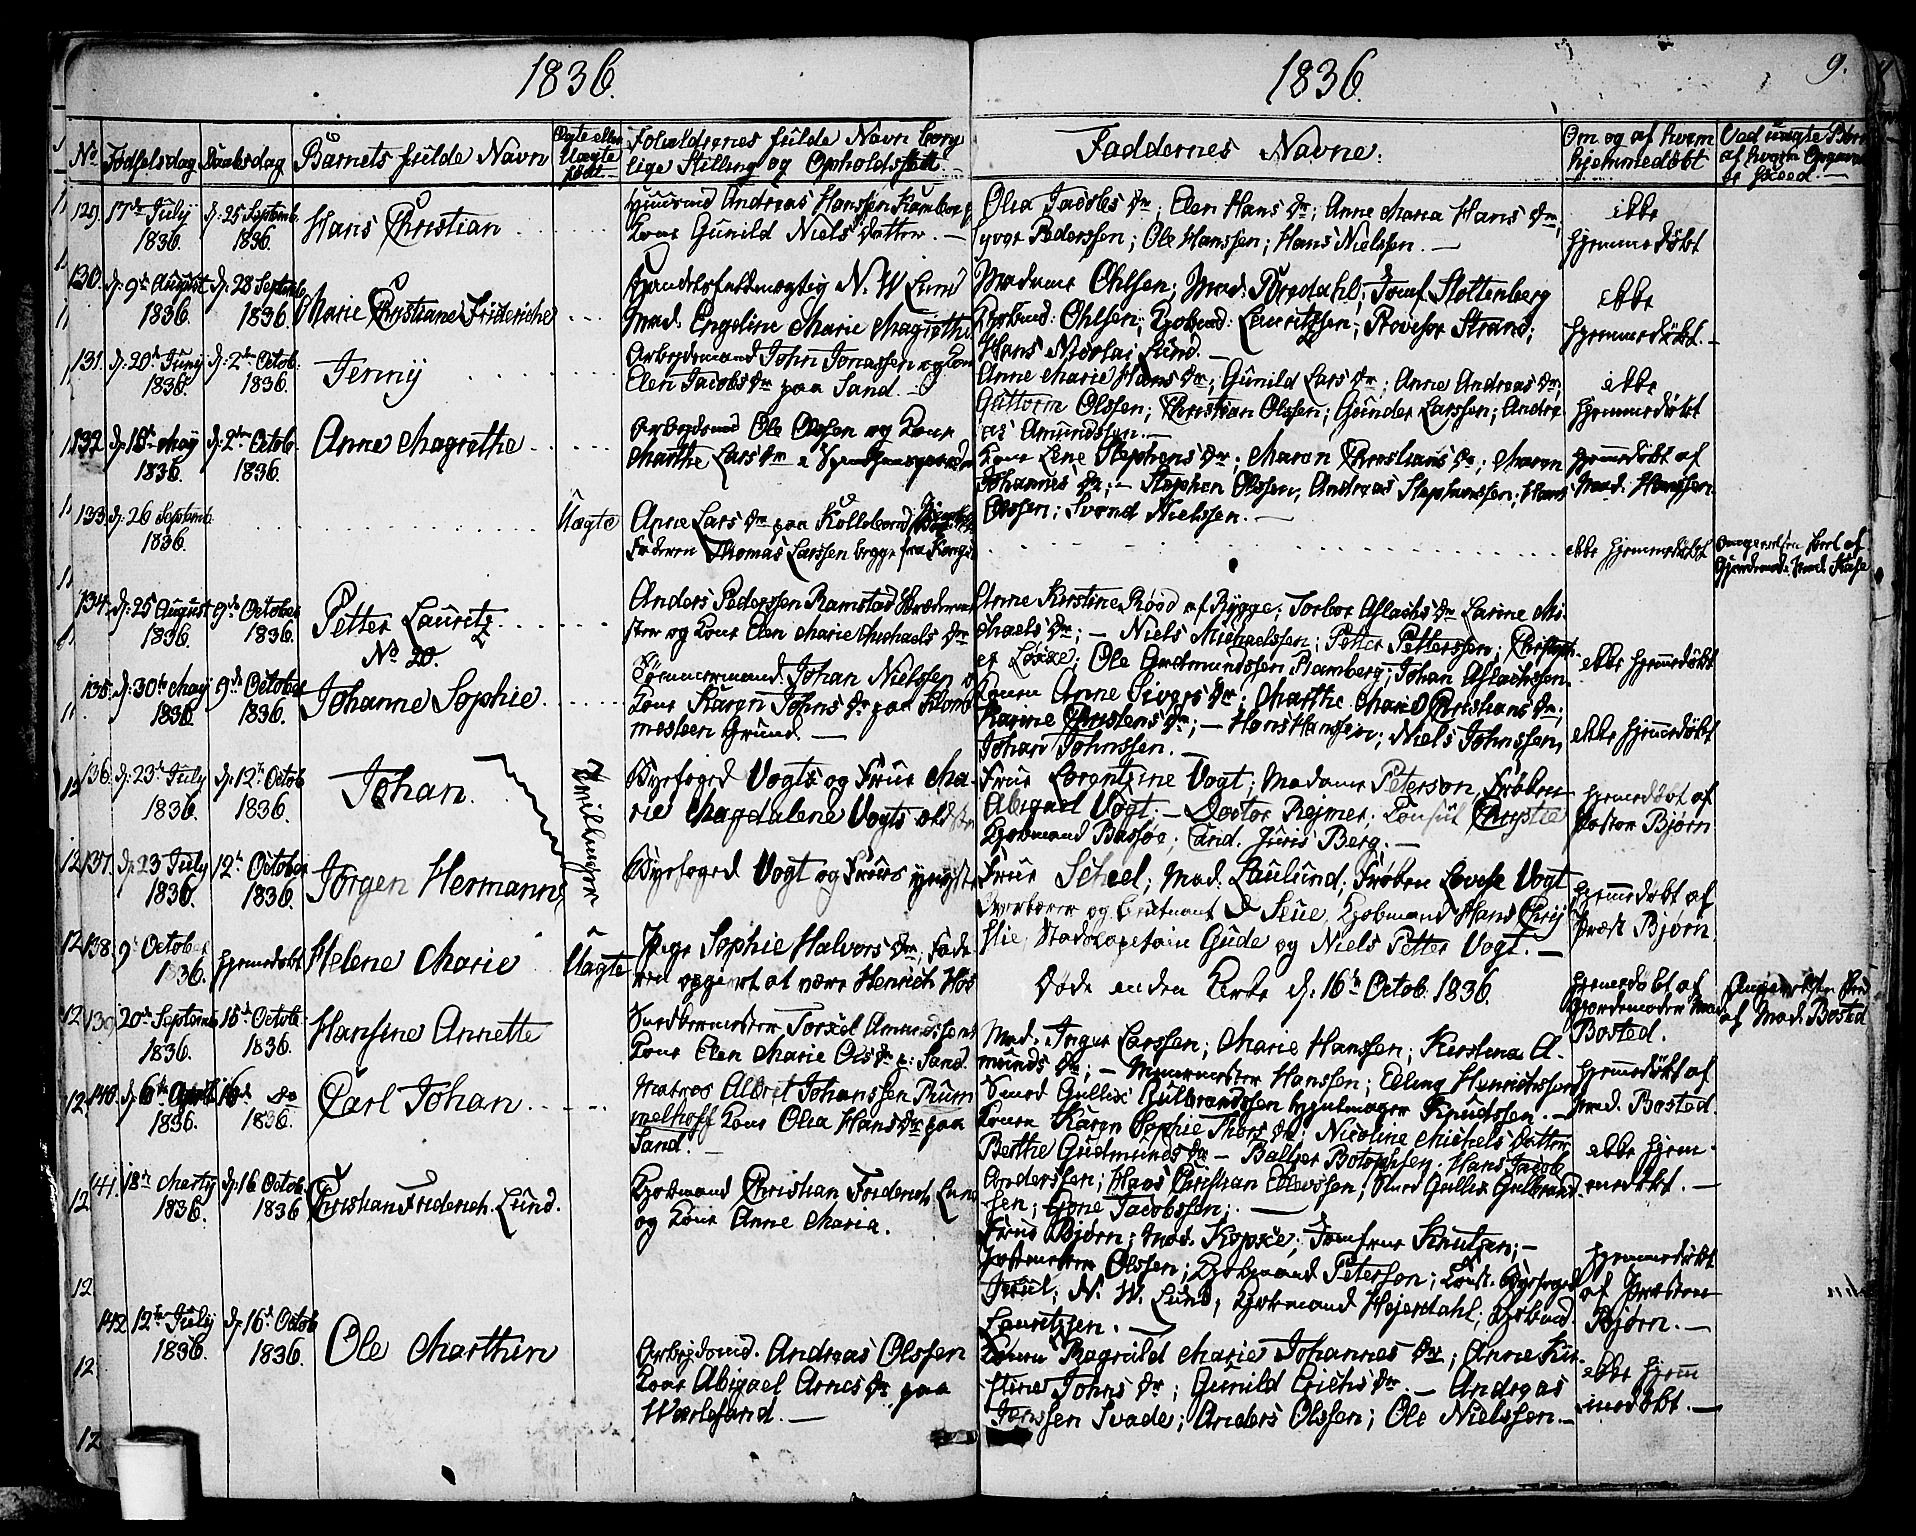 1836.
1836.
9.
No Fødselsdag Daabsdag Barnets fulde Navn Ægte eller Uægte født Forældrenes fulde Navn borgelige Stilling og Opholdsstæd
Faddernes Navne:
Om og af hvem hjemmedøbt
129. 17de July 1836. d: 25 Septemb. 1836. Hans Christian
Andreas Hanssen
Kone Gunild Niels Datter. —
Olea Jacobs Dtr; Elen Hans Dtr; Anne Maria Hans Dtr;
Syver Pederssen; Ole Hanssen; Hans Nielssen. —
ikke
hjemmedøbt
130. d: 9de August 1836. d: 28 Septemb. 1836. Marie Christiane Frideriche
Handelsfuldmægtig N. W. Lund
Mad. Engeline Marie Magrethe
Madame Ohlsen; Mad: Bredahl; Jomf. Stottenberg
Kjøbmd: Ohlsen; Kjøbmd: Lauritzsen; Provesor Strand;
Hans Nicolai Lund. —
ikke
hjemmedøbt. —
131. d: 20de Juny 1836. d: 2den Octob. 1836. Jenny
Arbejdsmand John Jonassen og Kone
Elen Jacobs Dtr paa Sand. —
Anne Marie Hans Dtr; Gunild Lars Dtr; Anne Andreas Dtr;
Guttorm Olssen; Christian Olssen; Gunder Larssen; Andre
as Amundssen. —
ikke
hjemmedøbt
132. d: 18de May 1836. d: 2den Octob. 1836. Anne Magrethe
Arbejdsmd Ole Olssen og Kone
Marthe Lars Dtr
Kone Lene Stephens Dtr; Maren Christians Dtr; Maren
Johannes Dtr; — Stephen Olssen, Andreas Stephenssen; Hans
Olssen; Svend Nielssen. —
hjemmedøbt af
Mad. Hanssen
133. d: 26 Septemb. 1836. Uægte
Anne Lars Dtr paa
Faderen Thomas Larssen begge fra
ikke hjemmedøbt
134. d: 25 August 1836. 9de October 1836. Petter Lauritz
No 20.
Anders Pederssen Ramstad
og Kone Elen Marie Michaels Dtr
Anne Kirstine Røed af Rygge; Torbor Aslachs Dtr Larine Mi-
chaels Dtr; — Niels Michaelssen; Petter Petterssen;
Ole Gudmundssen Ramberg; Johan Aslachssen.
ikke hjemmedøbt
135. d: 30te May 1836. 9de October 1836. Johanne Sophie.
Tømmermand. Johan Nielssen og
Kone Karen Johns Dtr paa
Grund. —
Konen Anne Sivers Dtr; Marthe Marie Christians Dtr;
Karine Christens Dtr; — Hans Hanssen; Niels Johnssen;
Johan Johnssen. —
ikke hjemmedøbt
136. d: 23de July 1836. d: 12te Octob 1836. Johan.
Tvillinger
Byefoged Vogts og Frue Ma-
rie Magdalene Vogts ældste
Frue Lorentzine Vogt; Madame Peterson, Frøken
Abigael Vogt, — Doctor Rejmer, Consul Chrystie
Kjøbmand Bassøe; Cand. Juris Berg. —
hjemmedøbt af
Pastor Bjørn
137. d: 23 July 1836. 12te October 1836. Jørgen Hermann
Byefoged Vogt og Frues yngste
Frue Scheel; Mad. Laulund; Frøken Lovise Vogt
og Leutnant D Seue, Kjøbmand Hans Chrij
stie, Stadscapetain Gude og Niels Petter Vogt. —
hjemmedøbt af
Præst Bjørn.
138. 9de October 1836. hjemedøbt Helene Marie Uægte
Pige Sophie Halvors Dtr, Fade
ren opgivet at være Henrich
Døde inden Kirke d: 16de Octob. 1836.
hjemedøbt af
Jordemoder Mad
Bosted.
af Mad. Bosted
139. 20de Septemb. 1836. 16de Octob. 1836. Hansine Annette
Snedkermester Torkel Amundssen
Kone Elen Marie Ols Dtr p: Sand.
Mad. Inger Larssen; Marie Hanssen; Kirstine A-
munds Dtr; — Muurmester Hanssen; Elling Henrichssen
Smed Gullix Gulbrandssen hjulmager Knudssen. —
hjemedøbt af
Mad. Bosted.
140. d: 6te April 1836. 16de Do 1836. Carl Johan
Matros Albret Johanssen Rum
melhoff Kone Olia Hans Dtr paa
Sand. —
Konen Karen Sophie Thors Dtr; Nicoline Michels Datter
Berthe Gudmunds Dtr — Baltzer Botolphsen. Hans Jacob
Anderssen; Hans Christian Ellevssen; Smed Gullix Gulbrand-
sen; Jacobssen. —
ikke hjem-
medøbt. —
141. 18de Marty 1836. d: 16 Octob. 1836 Christian Friderich. Lund.
Kjøbmand Christian Frederich Lund
og Kone Anne Maria.
Frue Bjørn; Mad. Kopke; Jomfrue Knutzen; —
Olssen; Kjøbmand Peterson; Const. Byefoged
Juul; N. W. Lund, Kjøbmand Hejerdahl; Kjøbmd.
Lauritzsen. —
hjemmedøbt
af Præsten
Bjørn. —
142 12te July 1836. d: 16de Octob 1836. Ole Marthin
Arbejdsmd. Andreas Olssen
Kone Abigael Arnes Dtr paa
Wærlesand. —
Konen Ragnild Marie Johannes Dtr; Anne Kir-
stine Johns Dtr; Gunild Erichs Dtr. — Andreas
Jenssen Svade; Anders Olssen; Ole Nielssen. —
ikke hjem
medøbt. —